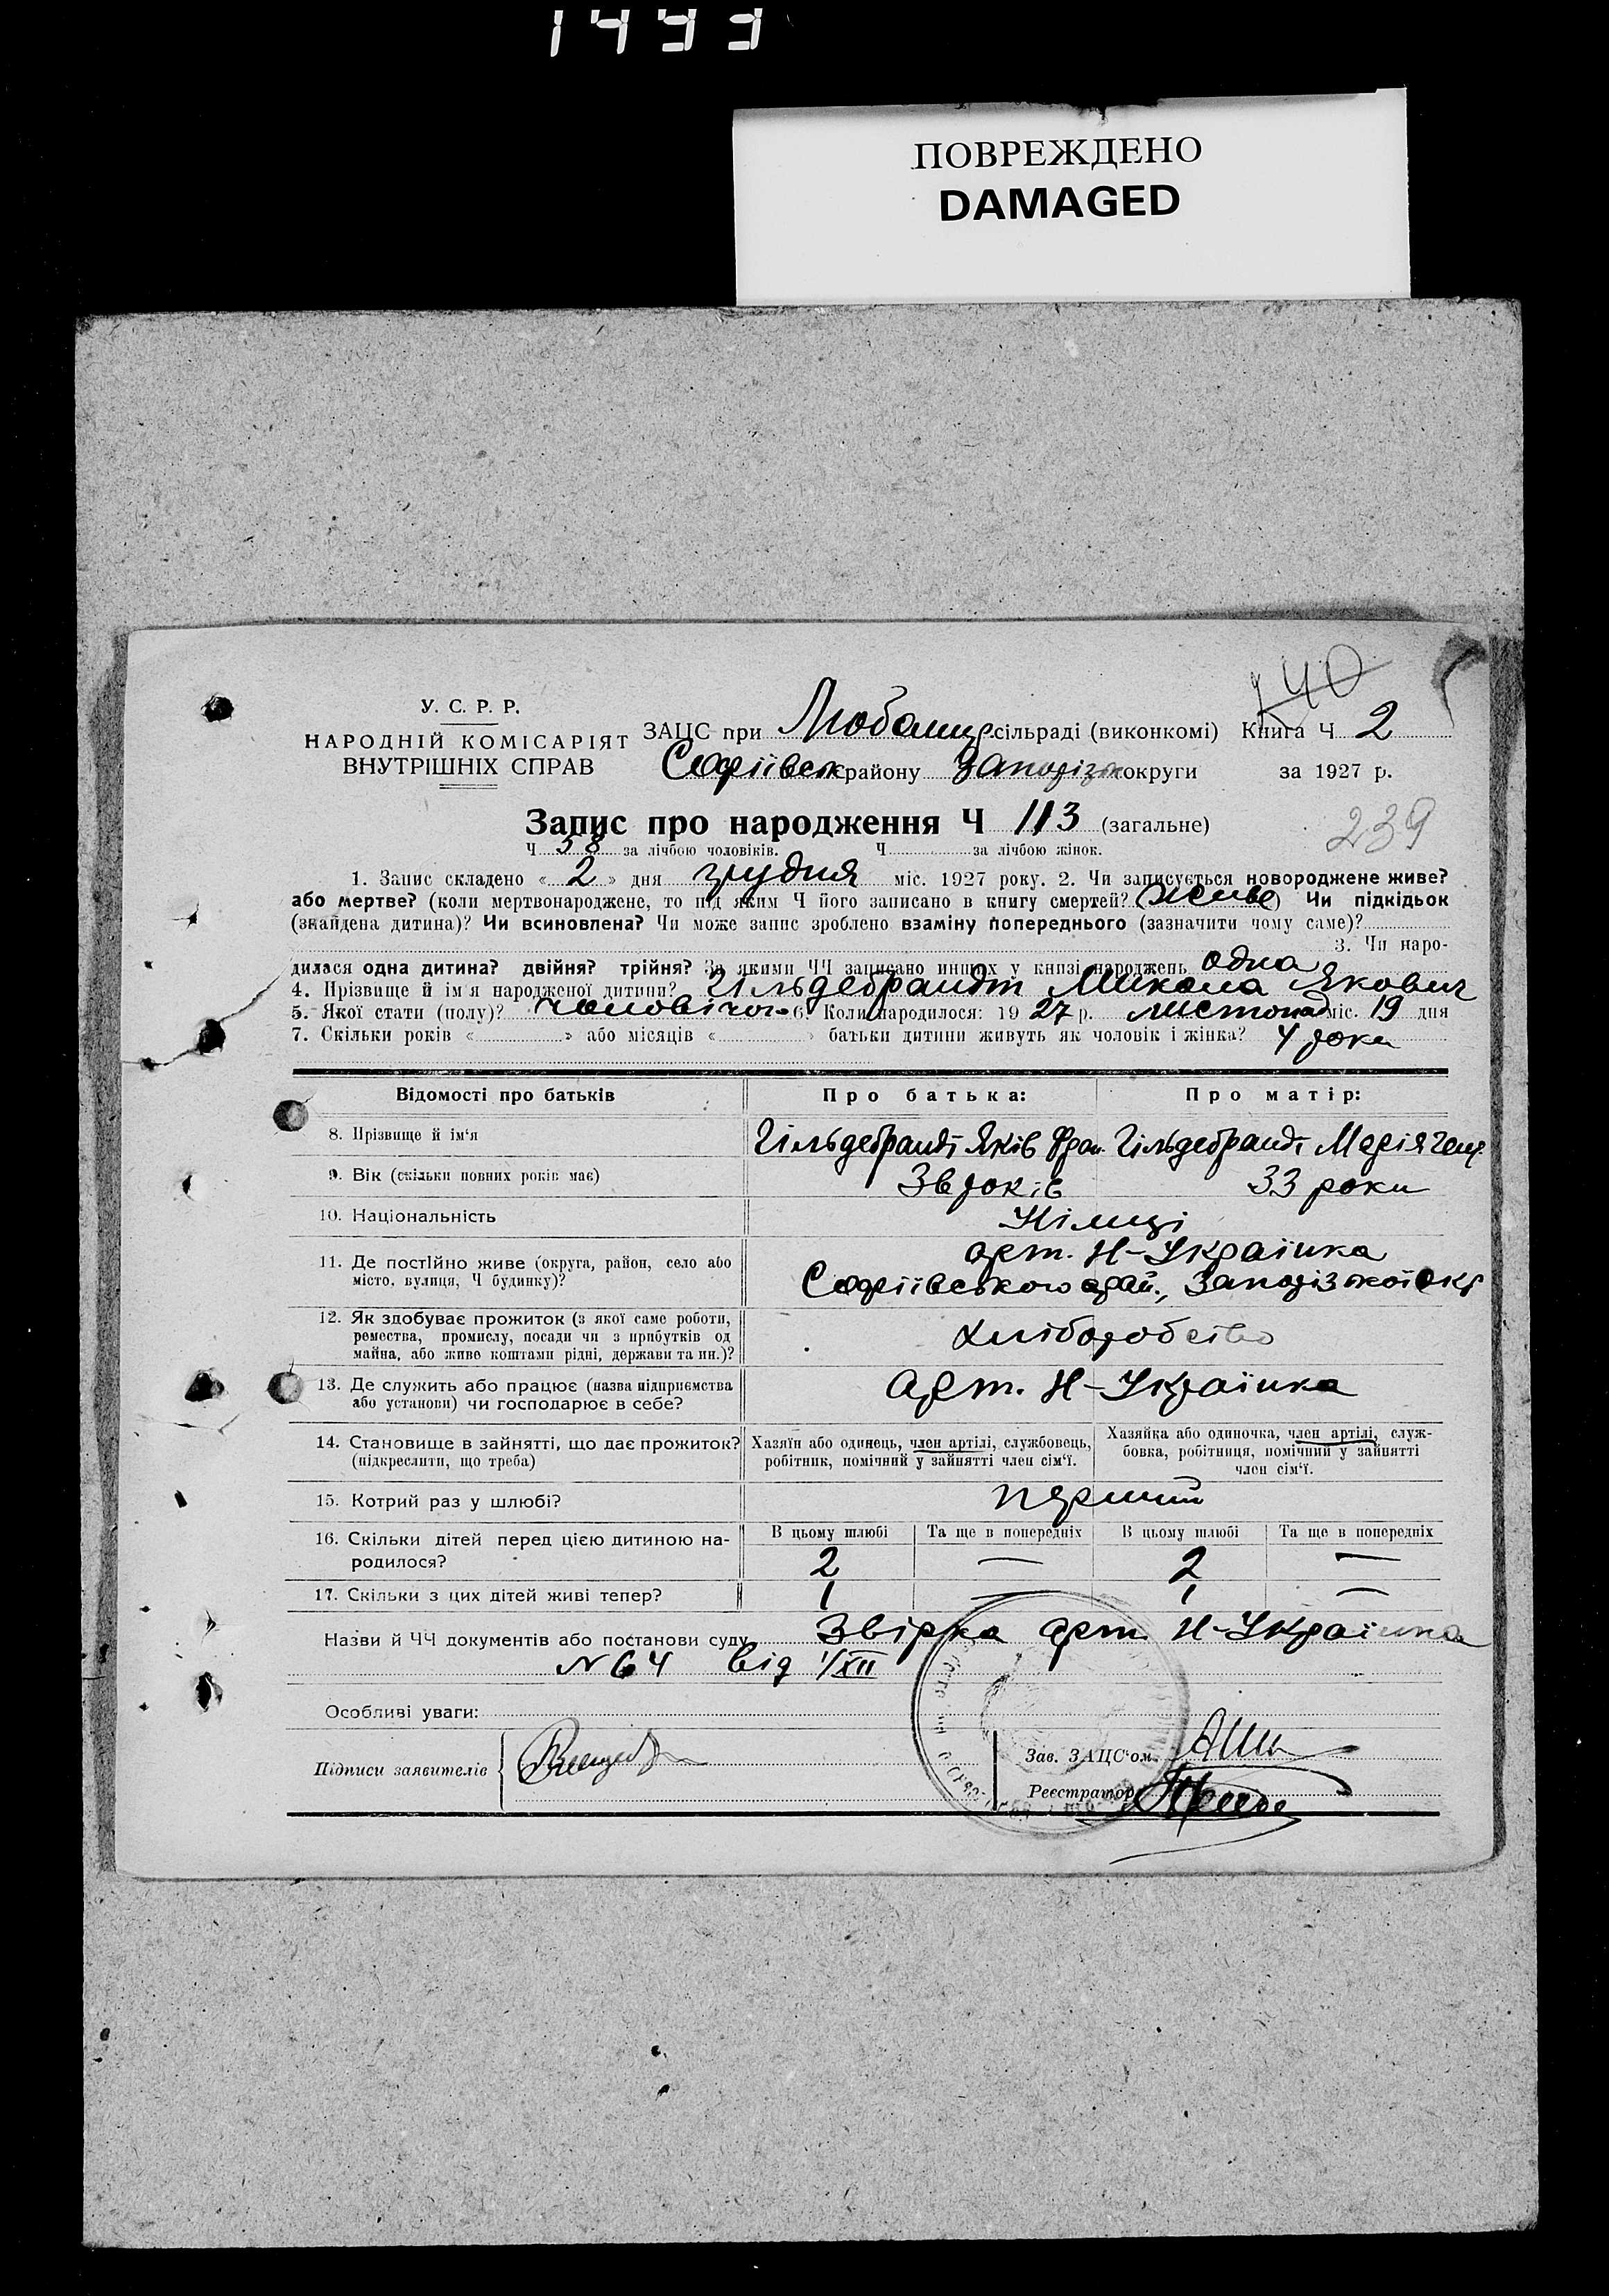 1493
ПОВРЕЖДЕНО
DAMAGED
140
У. С. Р. Р.
НАРОДНІЙ КОМІСАРІЯТ
ВНУТРІШНІХ СПРАВ
ЗАЦС при Любомир сільраді (виконкомі) Книга Ч 2
Софіївськ району Запорізьк округи за 1927 р.
Запис про народження Ч 113 (загальне)
239
Ч 58 за лічбою чоловіків. Ч за лічбою жінок.
1. Запис складено « 2 » дня грудня міс. 1927 року. 2. Чи записується новороджене живе?
або мертве? (коли мертвонароджене, то під яким Ч його записано в книгу смертей? живе) Чи підкідьок
(знайдена дитина)? Чи всиновлена? Чи може запис зроблено взаміну попереднього (зазначити чому саме)?
3. Чи наро-
дилася одна дитина? двійня? трійня? За якими ЧЧ записано инших у книзі народжень одна
4. Прізвище й ім'я народженої дитини? Гільдебрандт Микола Якович
5. Якої стати (полу)? чоловічої 6. Коли народилося: 1927 р. листопад міс. 19 дня
7. Скільки років « » або місяців « » батьки дитини живуть як чоловік і жінка? 4 роки
Відомості про батьків Про батька: Про матір:
8. Прізвище й ім'я Гільдебрандт Яків Фран. Гільдебрандт Марія Генр.
9. Вік (скільки повних років має) 36 років 33 роки
10. Національність Німці
11. Де постійно живе (округа, район, село або арт. Н-Українка
місто, вулиця, Ч будинку)? Софіївського рай., Запорізької окр
12. Як здобуває прожиток (з якої саме роботи,
ремества, промислу, посади чи з прибутків од хліборобство
майна, або живе коштами рідні, держави та ин.)?
13. Де служить або працює (назва підприємства арт. Н-Українка
або установи) чи господарює в себе?
14. Становище в зайнятті, що дає прожиток? Хазяїн або одинець, член артілі, службовець, Хазяйка або одиночка, член артілі, служ-
(підкреслити, що треба) робітник, помічний у зайнятті член сім'ї. бовка, робітниця, помічний у зайнятті
член сім'ї.
15. Котрий раз у шлюбі? перший
16. Скільки дітей перед цією дитиною на- В цьому шлюбі Та ще в попередніх В цьому шлюбі Та ще в попередніх
родилося? 2 — 2 —
17. Скільки з цих дітей живі тепер? 1 — 1 —
Назви й ЧЧ документів або постанови суду Звірка арт. Н-Українка
№ 64 від 1/XII
Особливі уваги:
Підписи заявителів
Зав. ЗАЦС'ом
Реєстратор